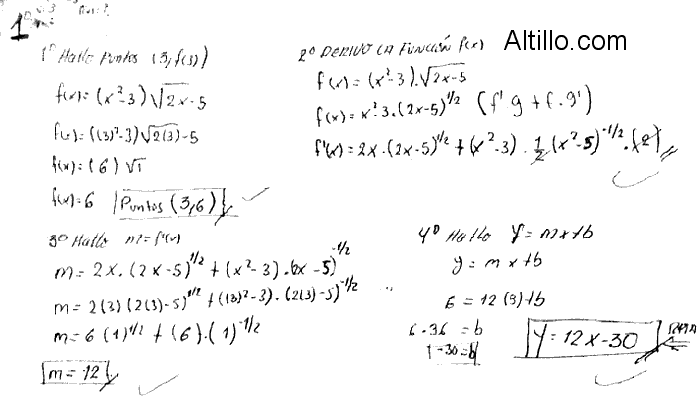 1
Altillo.com
1º Hallo Puntos (3, f(3))
f(x) = (x²-3) √2x-5
f(x) = ((3)²-3) √2(3)-5
f(x) = (6) √1
f(x) = 6 Puntos (3,6)
2º DERIVO LA FUNCIÓN f(x)
f(x) = (x²-3).√2x-5
f(x) = x²-3.(2x-5)^1/2 (f'g + f.g')
f'(x) = 2x.(2x-5)^1/2 + (x²-3).1/2 (x²-5)^-1/2.(2)
3º Hallo m = f'(x)
m = 2x.(2x-5)^1/2 + (x²-3).(2x-5)^-1/2
m = 2(3)(2(3)-5)^1/2 + ((3)²-3).(2(3)-5)^-1/2
m = 6(1)^1/2 + (6).(1)^-1/2
m = 12
4º Hallo Y = mx+b
y = mx+b
6 = 12(3)+b
6-36 = b
-30 = b
Y = 12x-30